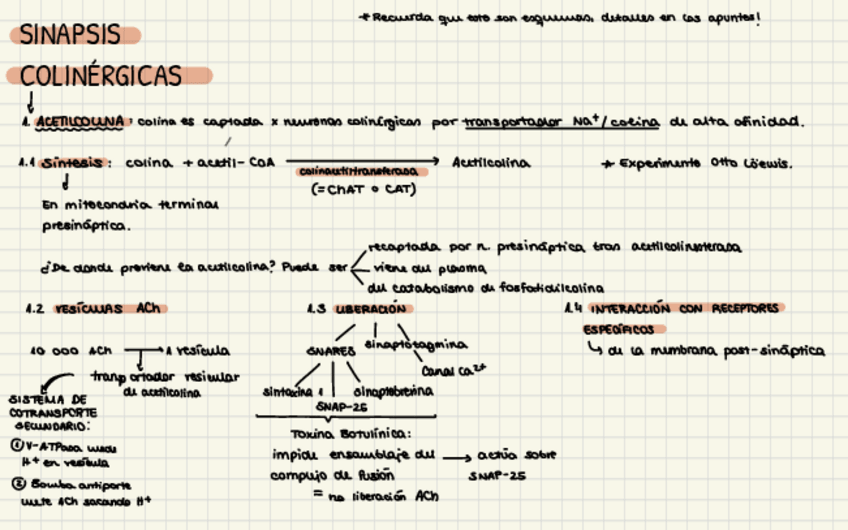 * Recuerda que esto son esquemas, detalles en los apuntes!
SINAPSIS
COLINÉRGICAS
1. ACETILCOLINA: colina es captada x neuronas colinérgicas por transportador Na+/colina de alta afinidad.
1.1 Síntesis: colina + acetil-CoA → Acetilcolina * Experimento Otto Löewis.
colinacetiltransferasa
(= ChAT o CAT)
En mitocondria terminal
presináptica.
¿De donde proviene la acetilcolina? Puede ser
recaptada por n. presináptica tras acetilcolinesterasa
viene del plasma
del catabolismo de fosfatidilcolina
1.2 VESÍCULAS ACh
10 000 ACh → 1 vesícula
transportador vesicular
de acetilcolina
SISTEMA DE
COTRANSPORTE
SECUNDARIO:
① V-ATPasa mete
H+ en vesícula
② Bomba antiporte
mete ACh sacando H+
1.3 LIBERACIÓN
SNARES
sinaptotagmina
Canal Ca2+
sintaxina 1
SNAP-25
sinaptobrevina
Toxina Botulínica:
impide ensamblaje del → actúa sobre
complejo de fusión SNAP-25
= no liberación ACh
1.4 INTERACCIÓN CON RECEPTORES
ESPECÍFICOS
↳ de la membrana post-sináptica